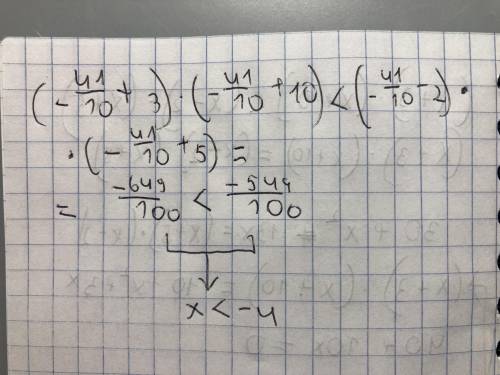 (-41/10 + 3) · (-41/10 + 10) < (-41/10 - 2) ·
· (-41/10 + 5) =
= -649/100 < -549/100
x < -4